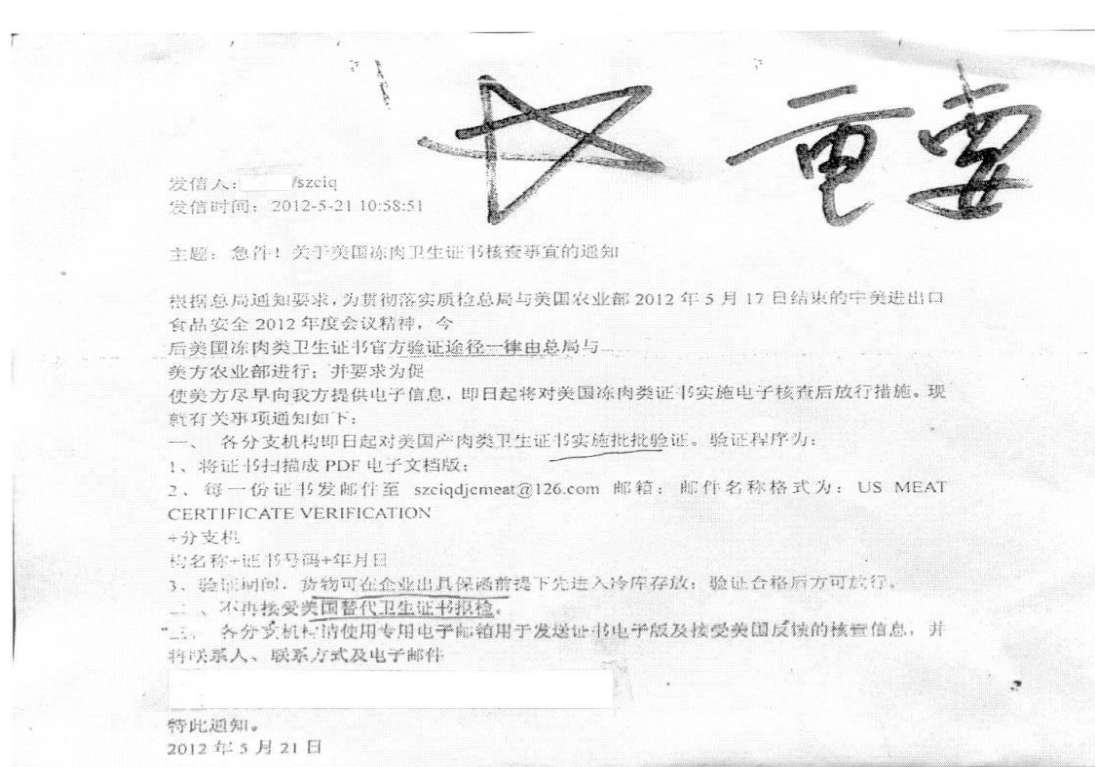 重要
发信人: /szciq
发信时间: 2012-5-21 10:58:51
主题: 急件! 关于美国冻肉卫生证书核查事宜的通知
根据总局通知要求,为贯彻落实质检总局与美国农业部 2012 年 5 月 17 日结束的中美进出口
食品安全 2012 年度会议精神, 今
后美国冻肉类卫生证书官方验证途径一律由总局与
美方农业部进行; 并要求为促
使美方尽早向我方提供电子信息, 即日起将对美国冻肉类证书实施电子核查后放行措施。现
就有关事项通知如下:
一、 各分支机构即日起对美国产肉类卫生证书实施批批验证。验证程序为:
1、将证书扫描成 PDF 电子文档版;
2、每一份证书发邮件至 szciqdjcmeat@126.com 邮箱; 邮件名称格式为: US MEAT
CERTIFICATE VERIFICATION
+分支机
构名称+证书号码+年月日
3、验证期间, 货物可在企业出具保函前提下先进入冷库存放; 验证合格后方可放行。
二、不再接受美国替代卫生证书报检。
三、 各分支机构请使用专用电子邮箱用于发送证书电子版及接受美国反馈的核查信息, 并
将联系人、联系方式及电子邮件
特此通知。
2012 年 5 月 21 日